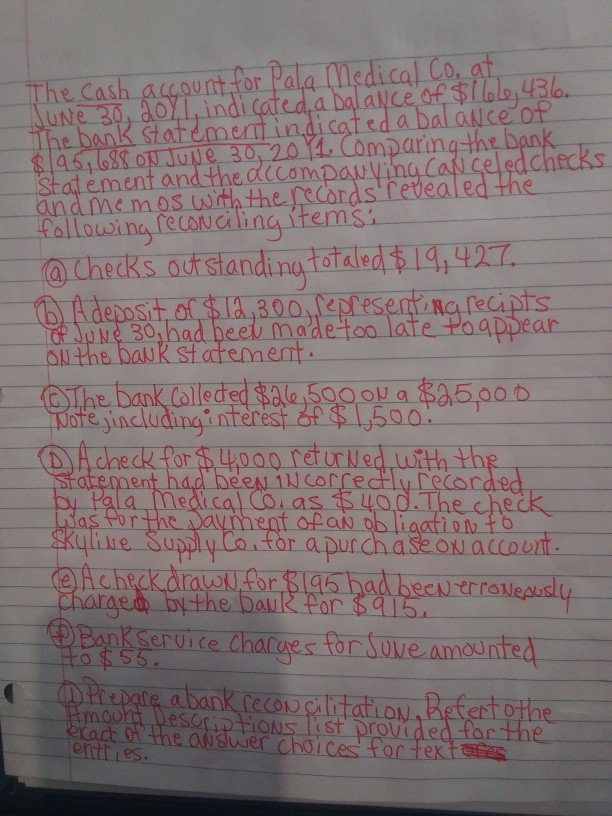 The cash account for Pala Medical Co. at
June 30, 20Y1, indicated a balance of $166,436.
The bank statement indicated a balance of
$195,688 on June 30, 20Y1. Comparing the bank
statement and the accompanying canceled checks
and memos with the records revealed the
following reconciling items:
ⓐ Checks outstanding totaled $19,427.
ⓑ A deposit of $12,300, representing recipts
of June 30, had been made too late to appear
on the bank statement.
ⓒ The bank collected $26,500 on a $25,000
Note, including interest of $1,500.
Ⓓ A check for $4,000 returned with the
statement had been incorrectly recorded
by Pala Medical Co. as $400. The check
was for the payment of an obligation to
Skyline Supply Co. for a purchase on account.
ⓔ A check drawn for $195 had been erroneously
charged by the bank for $915.
ⓕ Bank service charges for June amounted
to $55.
① Prepare a bank reconcilitation. Refer to the
Amount Descriptions list provided for the
exact of the answer choices for text
entries.